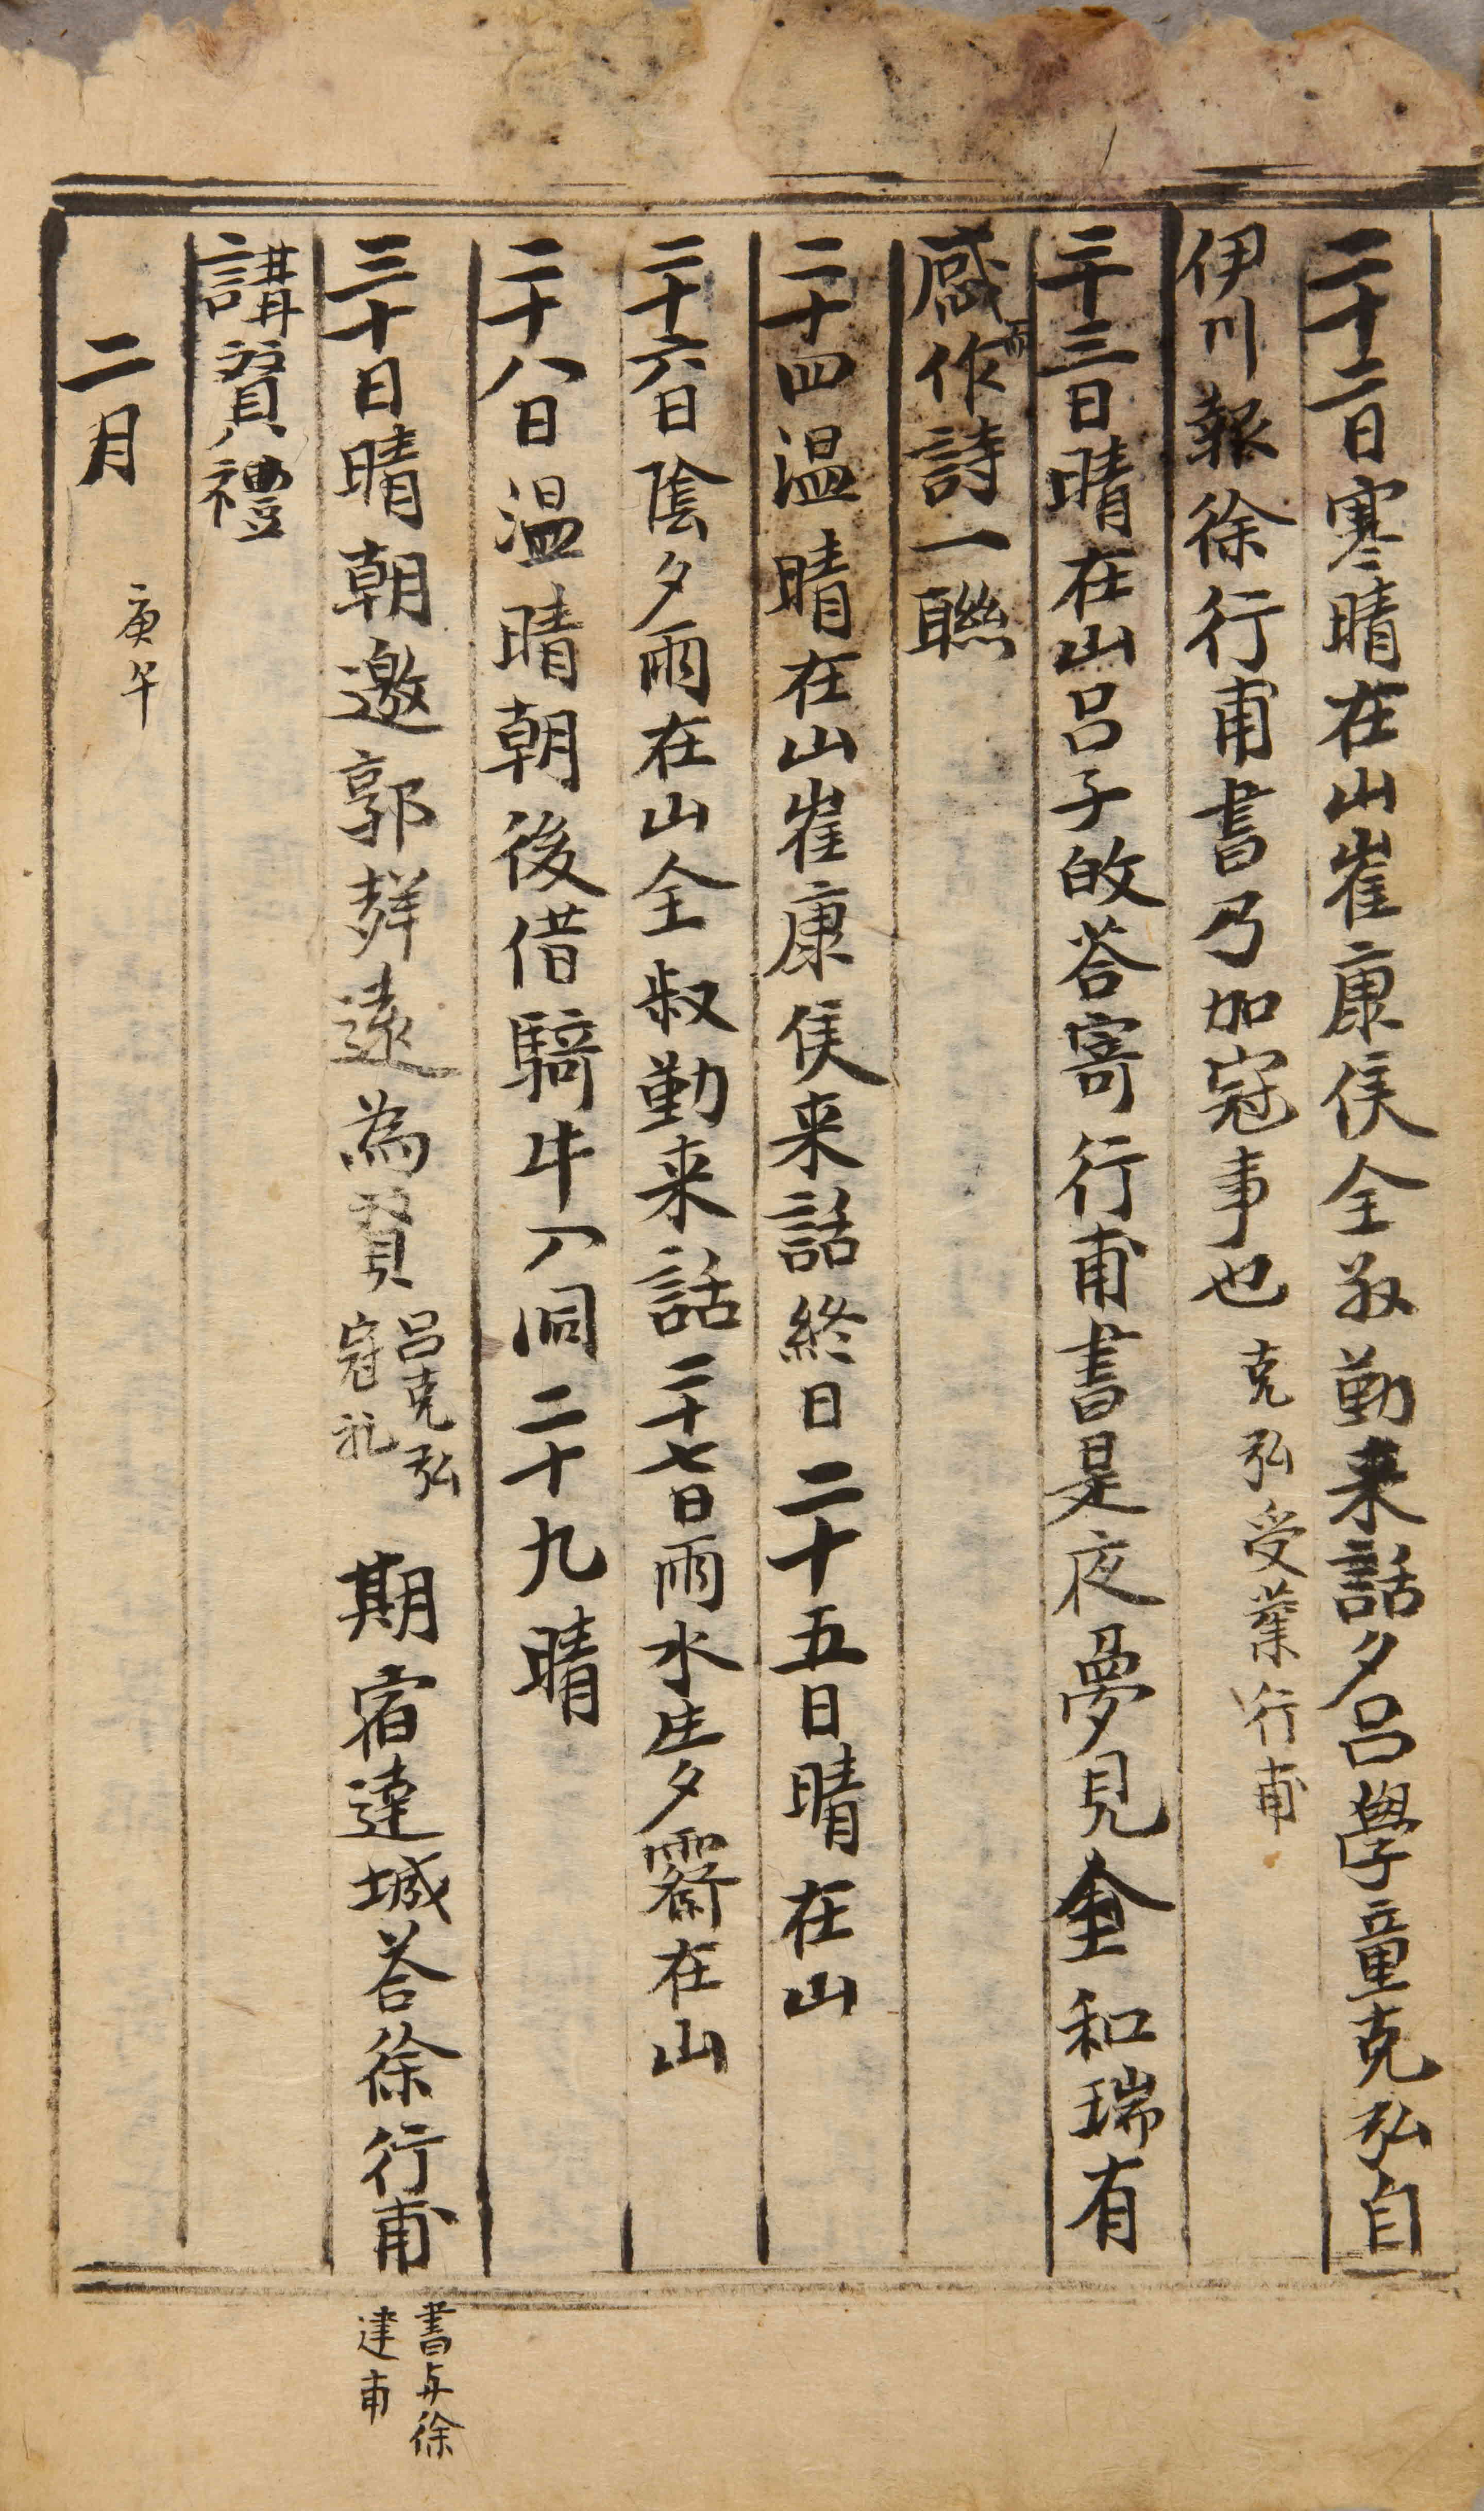 二十二日寒晴在山崔康侯全叔勤来話夕呂學童克弘自
伊川報徐行甫書乃加冠事也
克弘受業行甫
二十三日晴在山呂子皎荅寄行甫書是夜夢見金和瑞有
感而作詩一聯
二十四温晴在山崔康侯来話終日二十五日晴在山
二十六日陰夕雨在山全叔勤来話二十七日雨水生夕霽在山
二十八日温晴朝後借騎牛入洞二十九晴
三十日晴朝邀郭遠為賓
呂克弘
冠礼
期宿達城荅徐行甫
書与徐
建甫
講賓禮
二月
庚午